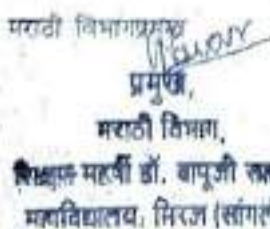 मराठी विभागप्रमुख
प्रमुख,
मराठी विभाग,
शिक्षण महर्षी डॉ. बापूजी
महाविद्यालय, मिरज (सांगली